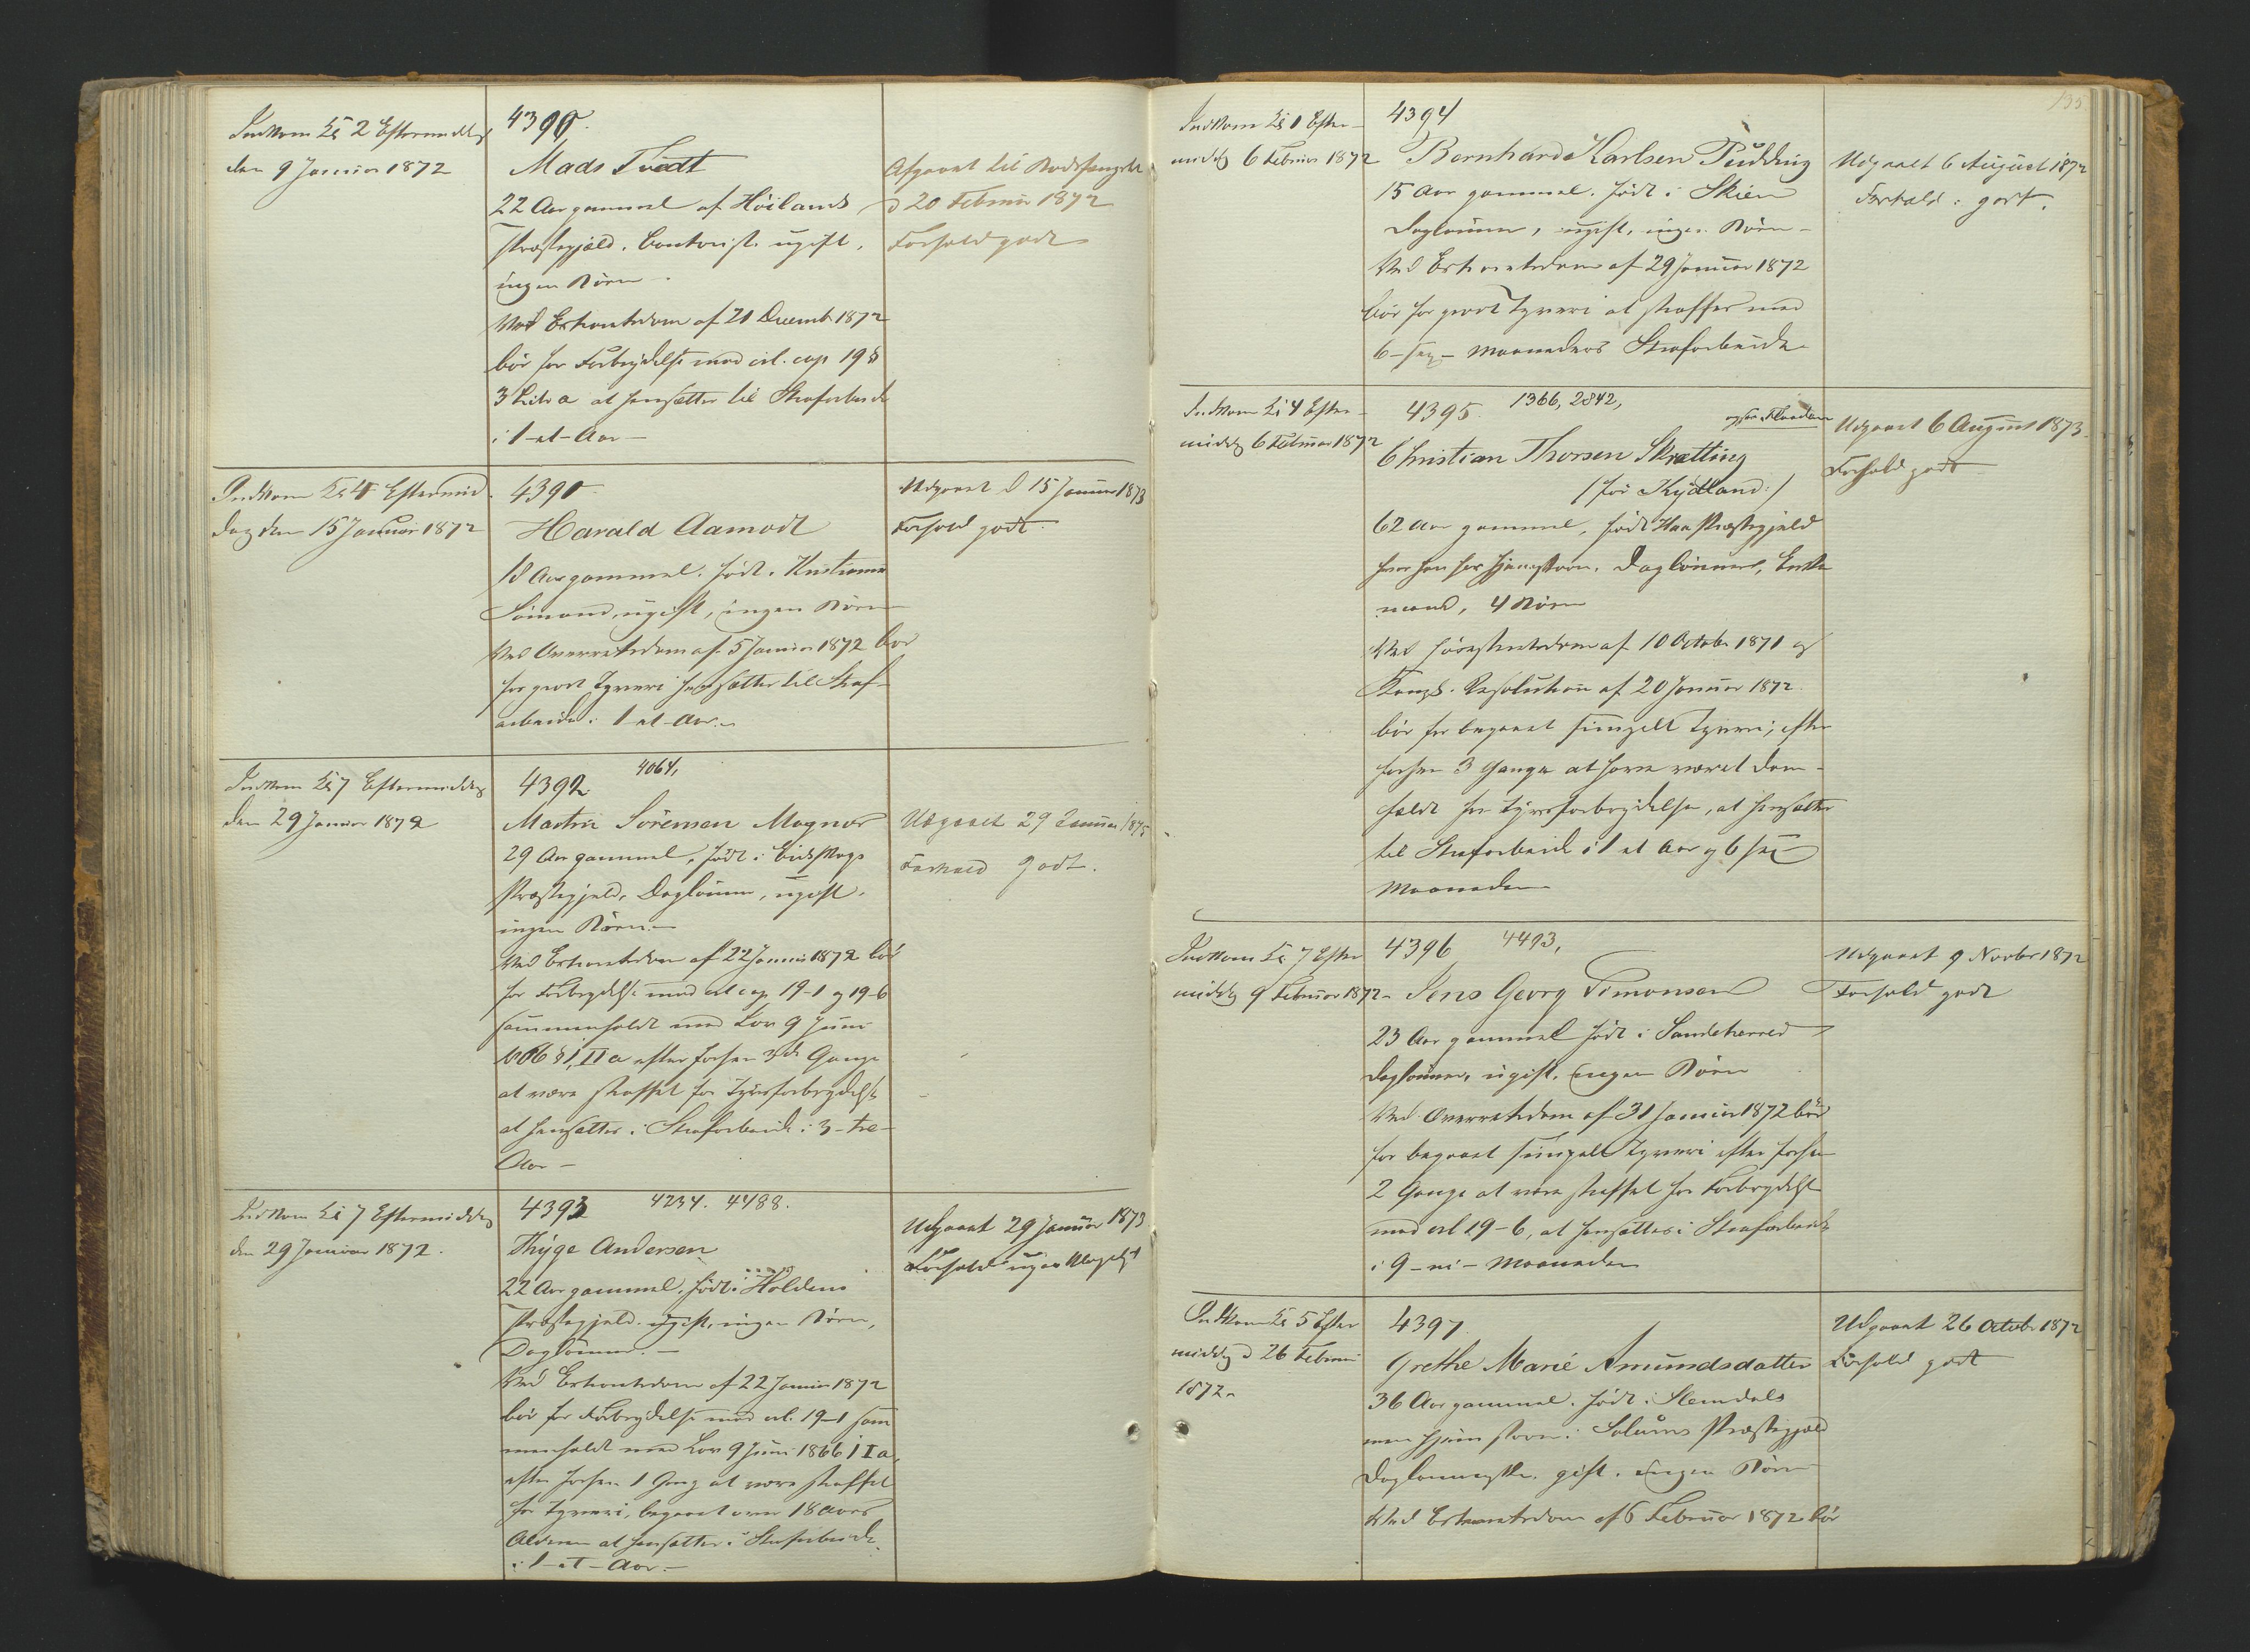 Indkom Kl 2 Eftermiddag
den 9 Januar 1872
4390.
Mads Tvedt
22 Aar gammel af Höilands
Præstegjæld. Contorist. ugift.
ingen Börn
Ved Extraretsdom af 21 Decemb 1872
bör for Forbrydelse mod crl. cap 19 §
3 Litr a at hensættes til Strafarbeide
i 1-et-Aar-
Afgaaet til Bodsfængslet
d 20 Februar 1872
Forhold godt
Indkom Kl 4 Eftermid
dag den 15 Januar 1872
4391
Harald Aamodt
18 Aar gammel. født i Kristiania
Sömand, ugift, ingen Börn
Ved Overretsdom af 5 Januar 1872 bör
for grovt Tyveri hensættes til Straf-
arbeide i 1-et-Aar.-
Udgaaet d 15 Januar 1873
Forhold godt.
Indkom Kl 7 Eftermiddag
den 29 Januar 1872
4392 4064,
Martin Sörensen Magnor
29 Aar gammel, født i Eidskogs
Præstegjeld, Daglönner, ugift.
ingen Börn.-
Ved Extraretsdom af 22 Januar 1872 bör
for Forbrydelse mod crl cap 19-1 og 19-6
sammenholdt med Lov 9 Juni
1866 § 1, II a efter forhen 3de Gange
at være straffet for Tyvsforbrydelse
at hensættes i Strafarbeide i 3-tre-
Aar-
Udgaaet 29 Januar 1875
Forhold godt.
Indkom Kl 7 Eftermiddag
den 29 Januar 1872.
4393 4234. 4488.
Thyge Andersen
22 Aar gammel, født i Holdens
Præstegjeld. ugift, ingen Börn,
Daglönner.-
Ved Extraretsdom af 22 Januar 1872
bör for Forbrydelse mod crl. 19-1 sam
menholdt med Lov 9 Juni 1866 § 1 I a,
efter forhen 1 Gang at være straffet
for Tyveri, begaaet over 18 Aars
Alderen at hensættes i Strafarbeide
i 1-et-Aar.-
Udgaaet 29 Januar 1873
Forhold
135
Indkom Kl 1 Efter-
middag 6 Februar 1872
4394
Bernhard Karlsen Pudding
15 Aar gammel. født i Skien
Daglönner, ugift, ingen Börn-
Ved Extraretsdom af 29 Januar 1872
bör for grovt Tyveri at straffes med
6-sex-Maaneders Strafarbeide
Udgaaet 6 August 1872
Forhold: godt.
Indkom Kl 4 Efter-
middag 6 Februar 1872
4395. 1366, 2842,
Christian Thorsen Skratting
/för Kydland:/
62 Aar gammel, född Haa Præstegjeld
hvor han har Hjemstavn. Daglönner, Enke
mand, 4 Börn
Ved Höiesteretsdom af 10 Octobr 1871 og
Kongl. Resolution af 20 Januar 1872.
bör for begaaet simpelt Tyveri, efter
forhen 3 Gange at have været dom-
fældt for Tyvsforbrydelse, at hensættes
til Strafarbeide i 1 et Aar og 6 sex
Maaneder
Udgaaet 6 August 1873.
Forhold godt
Indkom Kl 7 Efter
middag 9 Februar 1872-
4396 4493,
Jens Georg Simonsen
23 Aar gammel født i Sandeherred
Daglönner, ugift. Ingen Börn
Ved Overretsdom af 31 Januar 1872 bör
for begaaet simpelt Tyveri efter forhen
2 Gange at være straffet for Forbrydelse
mod crl 19-6, at hensættes i Strafarbeide
i 9-ni-Maaneder
Udgaaet 9 Novbr 1872
Forhold godt
Indkom Kl 5 Efter
middag d 26 Februar
1872.
4397.
Grethe Marie Amundsdatter
36 Aar gammel. født i Slemdals
men hjemstavn i Solums Præstegjæld
Daglönnerske. gift. Ingen Börn
Ved Extraretsdom af 6 Februar 1872 bör
Udgaaet 26 Octobr 1872
Forhold godt